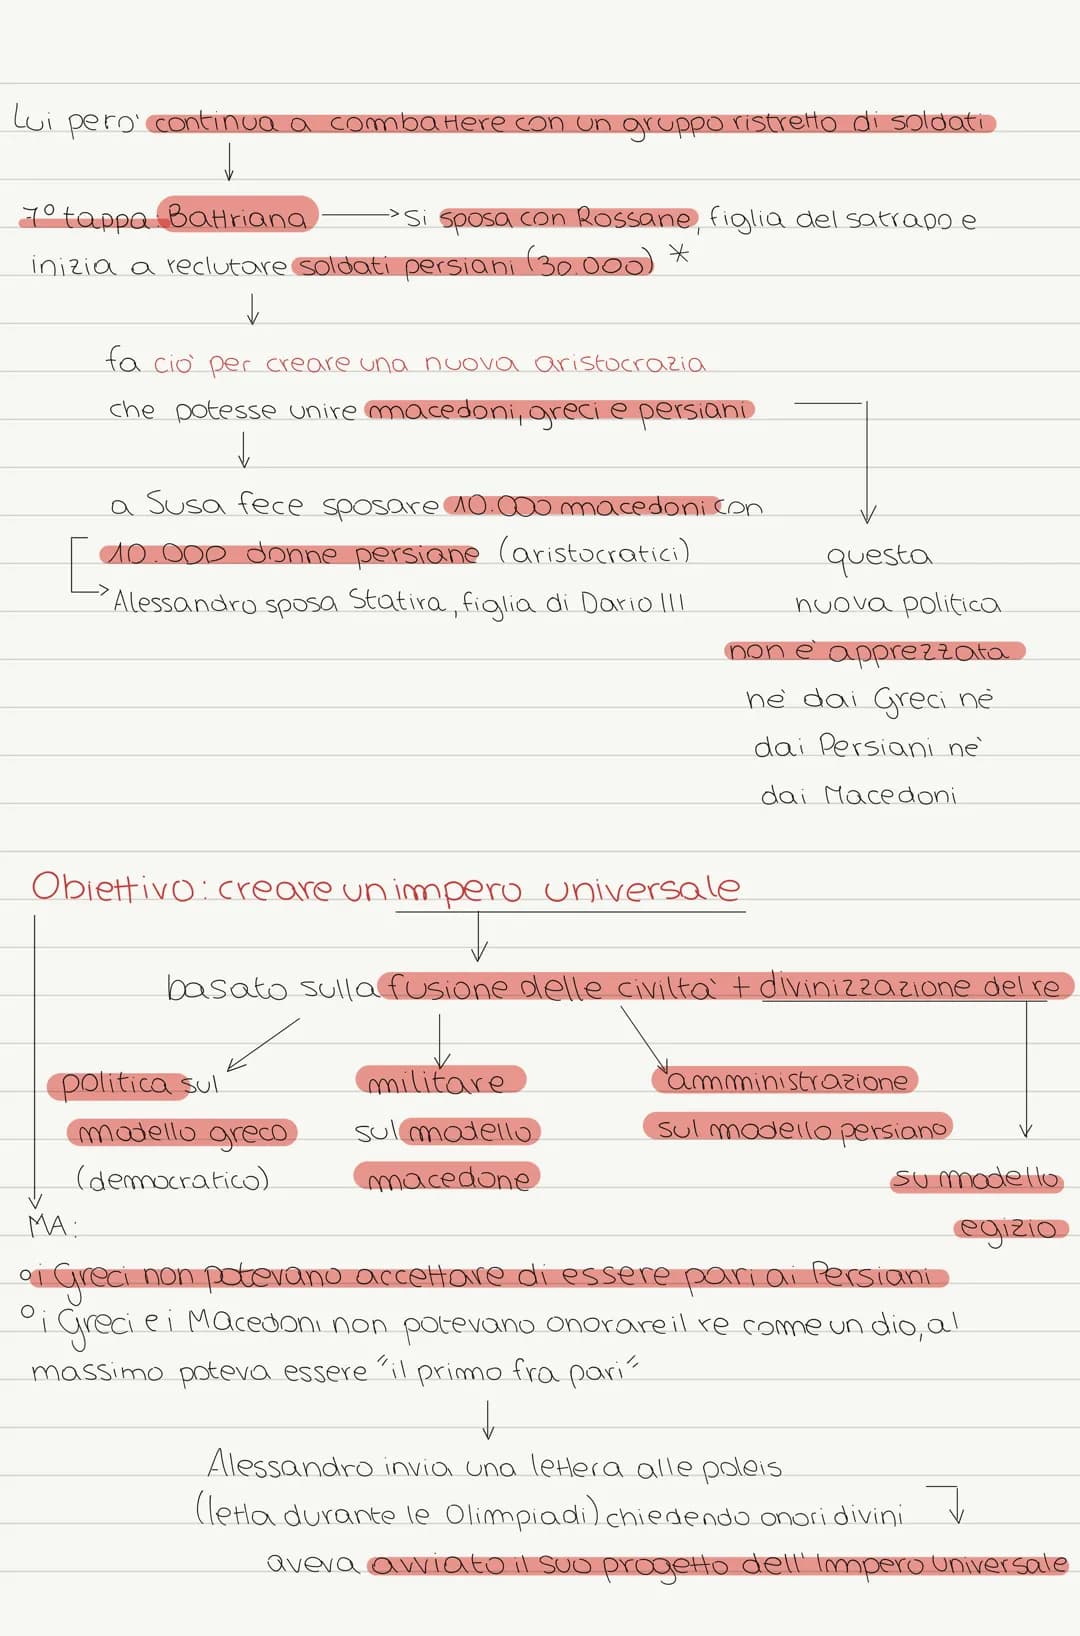 Lui però continua a combattere con un gruppo ristretto di soldati
7° tappa: Battriana → Si sposa con Rossane, figlia del satrapo e
inizia a reclutare soldati persiani (30.000) *
fa ciò per creare una nuova aristocrazia
che potesse unire macedoni, greci e persiani
a Susa fece sposare 10.000 macedoni con
10.000 donne persiane (aristocratici)
Alessandro sposa Statira, figlia di Dario III
questa
nuova politica
non è apprezzata
nè dai Greci nè
dai Persiani nè
dai Macedoni
Obiettivo: creare un impero universale
basato sulla fusione delle civiltà + divinizzazione del re
politica sul
modello greco
(democratico)
militare
sul modello
macedone
amministrazione
sul modello persiano
su modello
egizio
MA:
° i Greci non potevano accettare di essere pari ai Persiani
° i Greci e i Macedoni non potevano onorare il re come un dio, al
massimo poteva essere "il primo fra pari"
Alessandro invia una lettera alle poleis
(letta durante le Olimpiadi) chiedendo onori divini
aveva avviato il suo progetto dell'Impero Universale